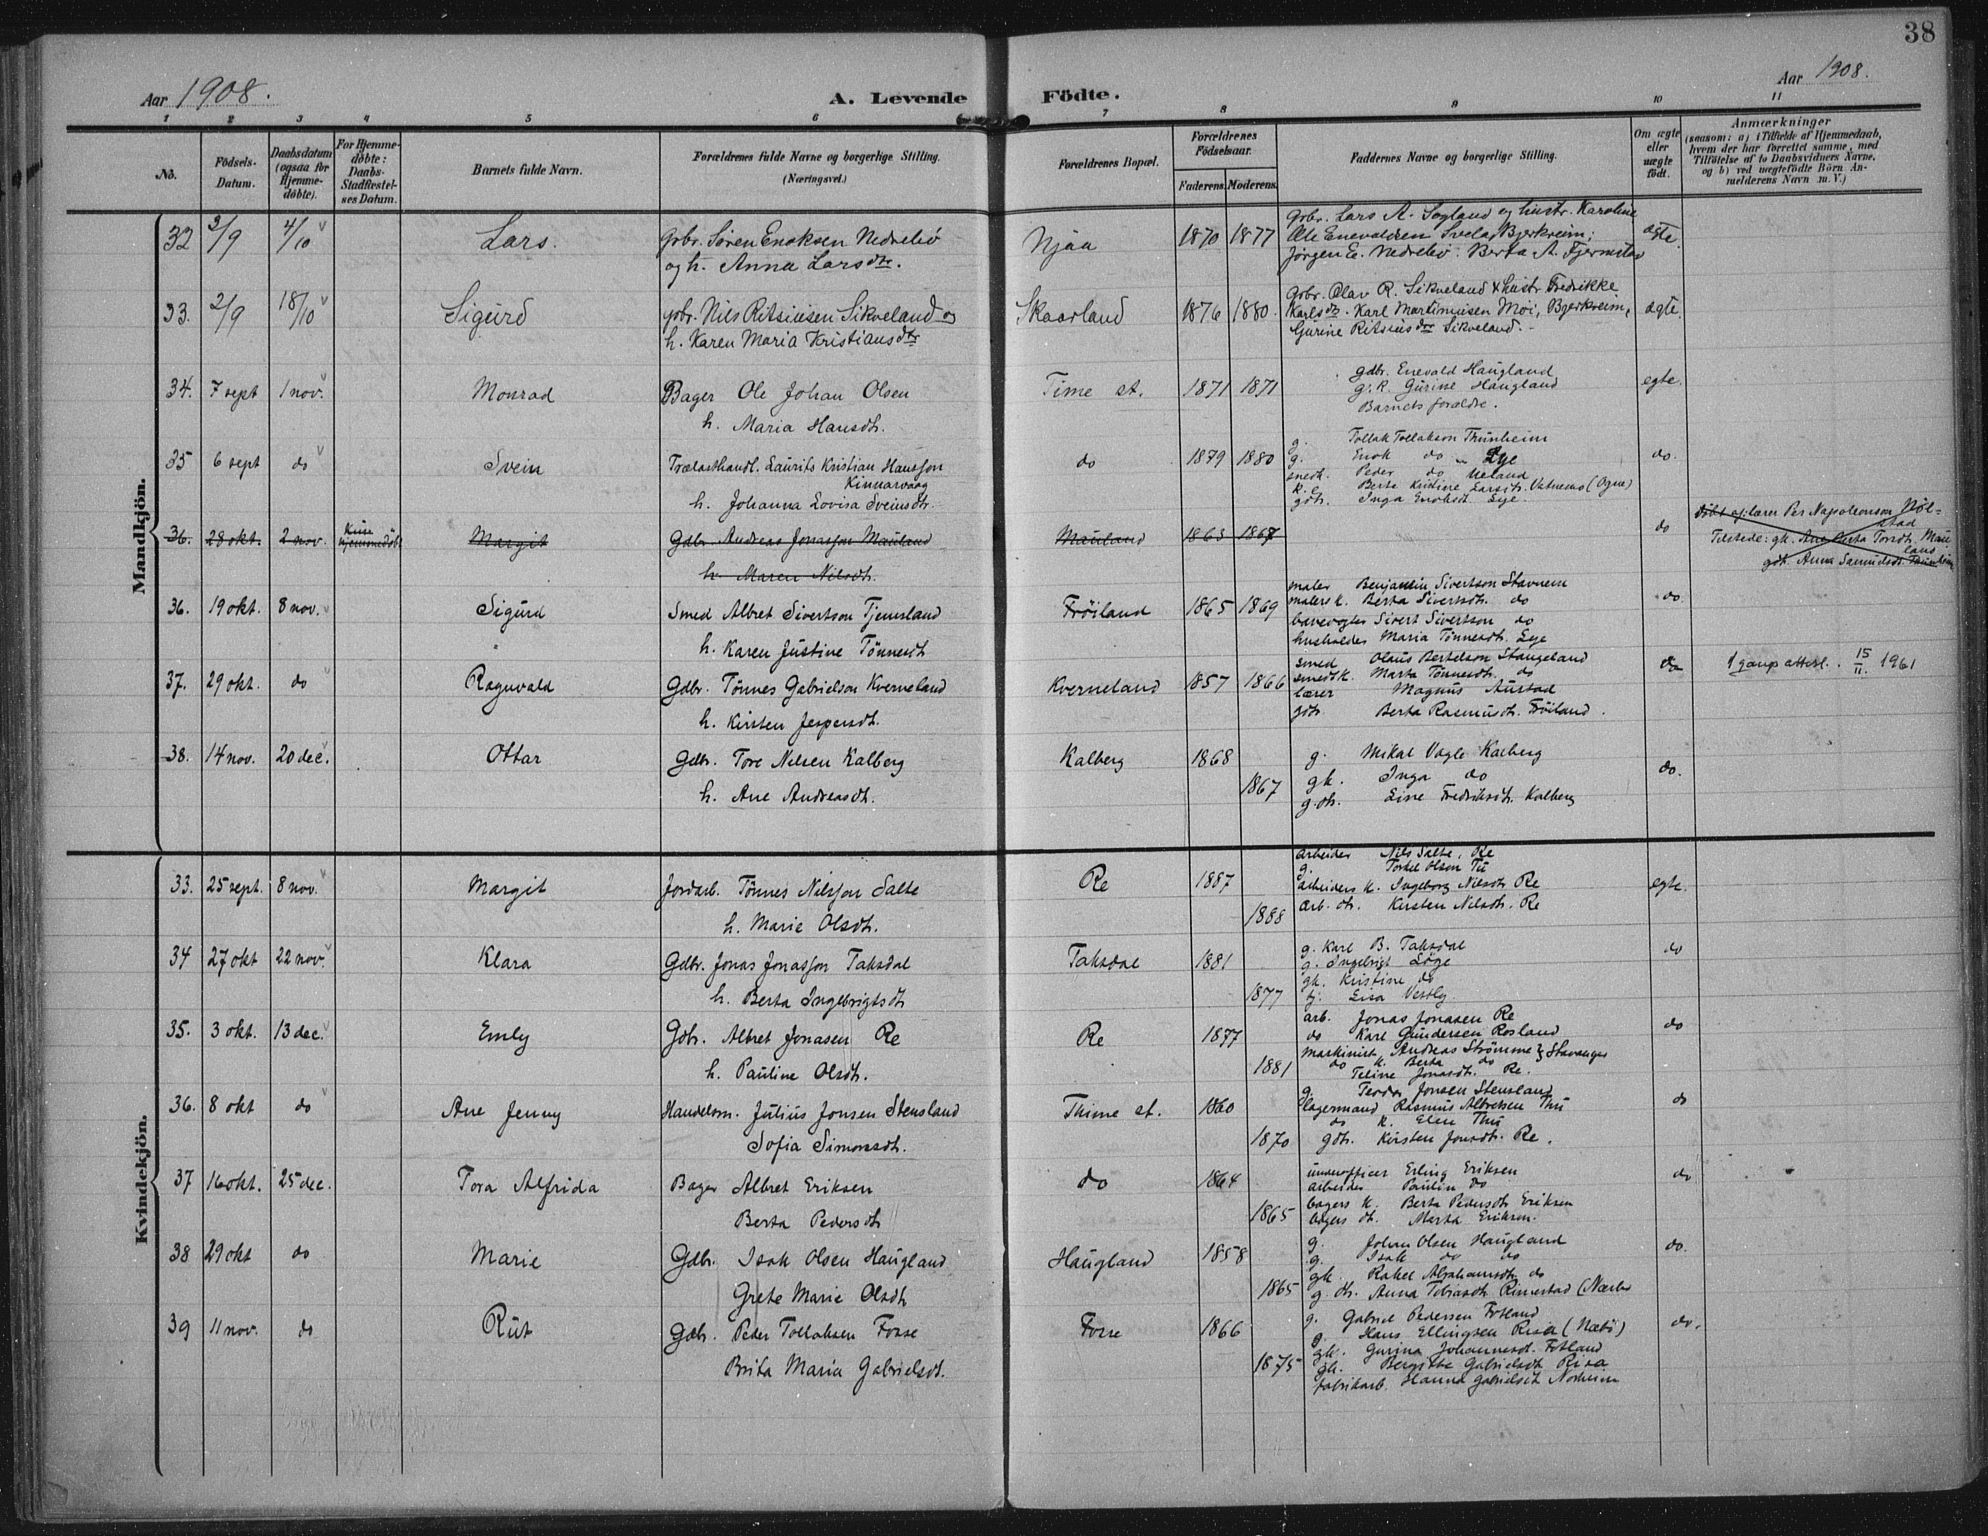 38
Aar 1908.
A. Levende Födte.
Aar 1908.
1 2 3 4 5 6 7 8 9 10 11
No.
Födsels-Datum.
Daabsdatum (ogsaa for Hjemme-döbte).
For Hjemme-döbte: Daabs-Stadfæstel-ses Datum.
Barnets fulde Navn.
Forældrenes fulde Navne og borgerlige Stilling. (Næringsvei.)
Forældrenes Bopæl.
Forældrenes Födselsaar.
Faderens. Moderens.
Faddernes Navne og borgerlige Stilling.
Om ægte eller uægte födt.
Anmærkninger
(saasom: a) i Tilfælde af Hjemmedaab,
hvem der har forrettet samme, med
Tilföielse af to Daabsvidners Navne,
og b) ved uægtefödte Börn An-
melderens Navn m. V.)
Mandkjön.
32 3/9 4/10 Lars. Gbr. Søren Enoksen Nedrebø Njaa 1870 1877 Gbr. Lars A. Sogland og hustr. Karoline ægte.
og h. Anna Larsdtr. Ole Enevaldsen Svela, Bjerkreim;
Jørgen E. Nedrebø. Berta A. Fjermstad
33. 2/9 18/10 Sigurd gbr. Nils Ritsiusen Sikveland og Skaarland 1876 1880 Gbr. Olav R. Sikveland & hustr. Fredrikke ægte.
h. Karen Maria Kristiansdtr Karlsdtr. Karl Martiniusen Moi, Bjerkreim,
Gurine Ritsiusdtr Sikveland.
34. 7 sept 1 nov. Monrad Bager Ole Johan Olsen Time st. 1871 1871 gdbr. Enevald Haugland egte.
h. Maria Hansdt. g. k. Gurine Haugland
Barnets forældre.
35 6 sept do Svein Trælasthandl. Laurits Kristian Hansson do 1879 1880 g. Tollak Tollakson Thunheim do.
Kinnarvaag g. Enok do Lye
h. Johanna Lovisa Sveinsdt. smedk. Peder do Ueland
k. e Berta Kristine Larsdt. Vatnemo (Ogne)
gdt. Inga Enoksdt. Lye.
36. 28 okt. 2 nov. hjemmedøbt Margit Gdbr. Andreas Jonasson Mauland Mauland 1863 1867 do døbt af lærer Per Napoleonson
h. Maren Nilsdt. Tilstede: gk. Ane Berta Torsdt. Mau
land
gdt. Anna Samuelsdt. Thunheim
36. 19 okt. 8 nov. Sigurd Smed Albret Sivertson Tjemsland Frøiland 1865 1869 maler Benjamin Sivertson Stavnem do.
h. Karen Justine Tønnesdt malers k. Berta Sivertsdt. do
banevogter Sivert Sivertson do
husholder Maria Tønnesdt. Lye
37. 29 okt. do Ragnvald Gdbr. Tønnes Gabrielson Kverneland Kverneland 1857 1866 smed Olaus Bertelson Stangeland do 1 gang attest. 15/II. 1961
h. Kirsten Jespersdt. smedk. Marta Tønnesdt. do
lærer Magnus Austad
gdt. Berta Rasmusdt. Frøiland.
38. 14 nov. 20 dec. Ottar Gdbr. Tore Nilsen Kalberg Kalberg 1868 1867 g. Mikal Vagle Kalberg do.
h. Ane Andreasdt. gk. Inga do
g.dt. Line Fredriksdt. Kalberg
Kvindekjön.
33. 25 sept. 8 nov. Margit Jordarb. Tønnes Nilsson Salte Re 1887 1888 arbeider Nils Salte, Re egte.
h. Marie Olsdt. g. Torkel Olson Tu
arbeiders k. Ingeborg Nilsdt. Re
arb. dt. Kirsten Nilsdt. Re
34 27 okt 22 nov. Klara Gdbr. Jonas Jonasson Taksdal Taksdal 1881 1877 g. Karl B. Taksdal do
h. Berta Ingebrigtsdt g. Ingebrigt Løge
gk. Kristine do
tj. Lisa Vestly
35. 3 okt. 13 dec. Emly Gdb. Albret Jonasen Re Re 1877 1881 arb. Jonas Jonasen Re do
h. Pauline Olsdt. do Karl Gundersen Rosland
maskinist Andreas Strømme } Stavanger
do k. Berta do
Teline Jonasdt. Re.
36. 8 okt do Ane Jenny Handelsm. Julius Jonsen Stensland Thime st. 1860 1870 g. Teodor Jonsen Stensland do
Sofia Simonsdt. lagermand Rasmus Albretsen Thu
do k. Elen Thu
gdt. Kirsten Jonsdt. Re.
37 16 okt. 25 dec. Tora Alfrida Bager Albret Eriksen do 1864 1865 underofficer Erling Eriksen do
Berta Pedersdt arbeider Paulin do
bagers k. Berta Pedersdt Eriksen
bagers dt. Marta Eriksen.
38 29 okt do Marie Gdbr. Isak Olsen Haugland Haugland 1858 1865 g. Johan Olsen Haugland do.
Grete Marie Olsdt g. Isak do do
gk. Rakel Abrahamsdt. do
g. dt. Anna Tobiasdt Rimestad (Nærbø
39 11 nov. do Rut Gdb. Peder Tollaksen Fosse Fosse 1866 1875 g. Gabriel Pedersen Fotland do.
Brita Maria Gabrielsdt. g. Hans Ellingsen Risa (Næbø)
gk. Gurina Johannesdt. Fotland
gk. Bergitte Gabrielsdt Risa
fabrikarb. Hanna Gabrielsdt Norheim